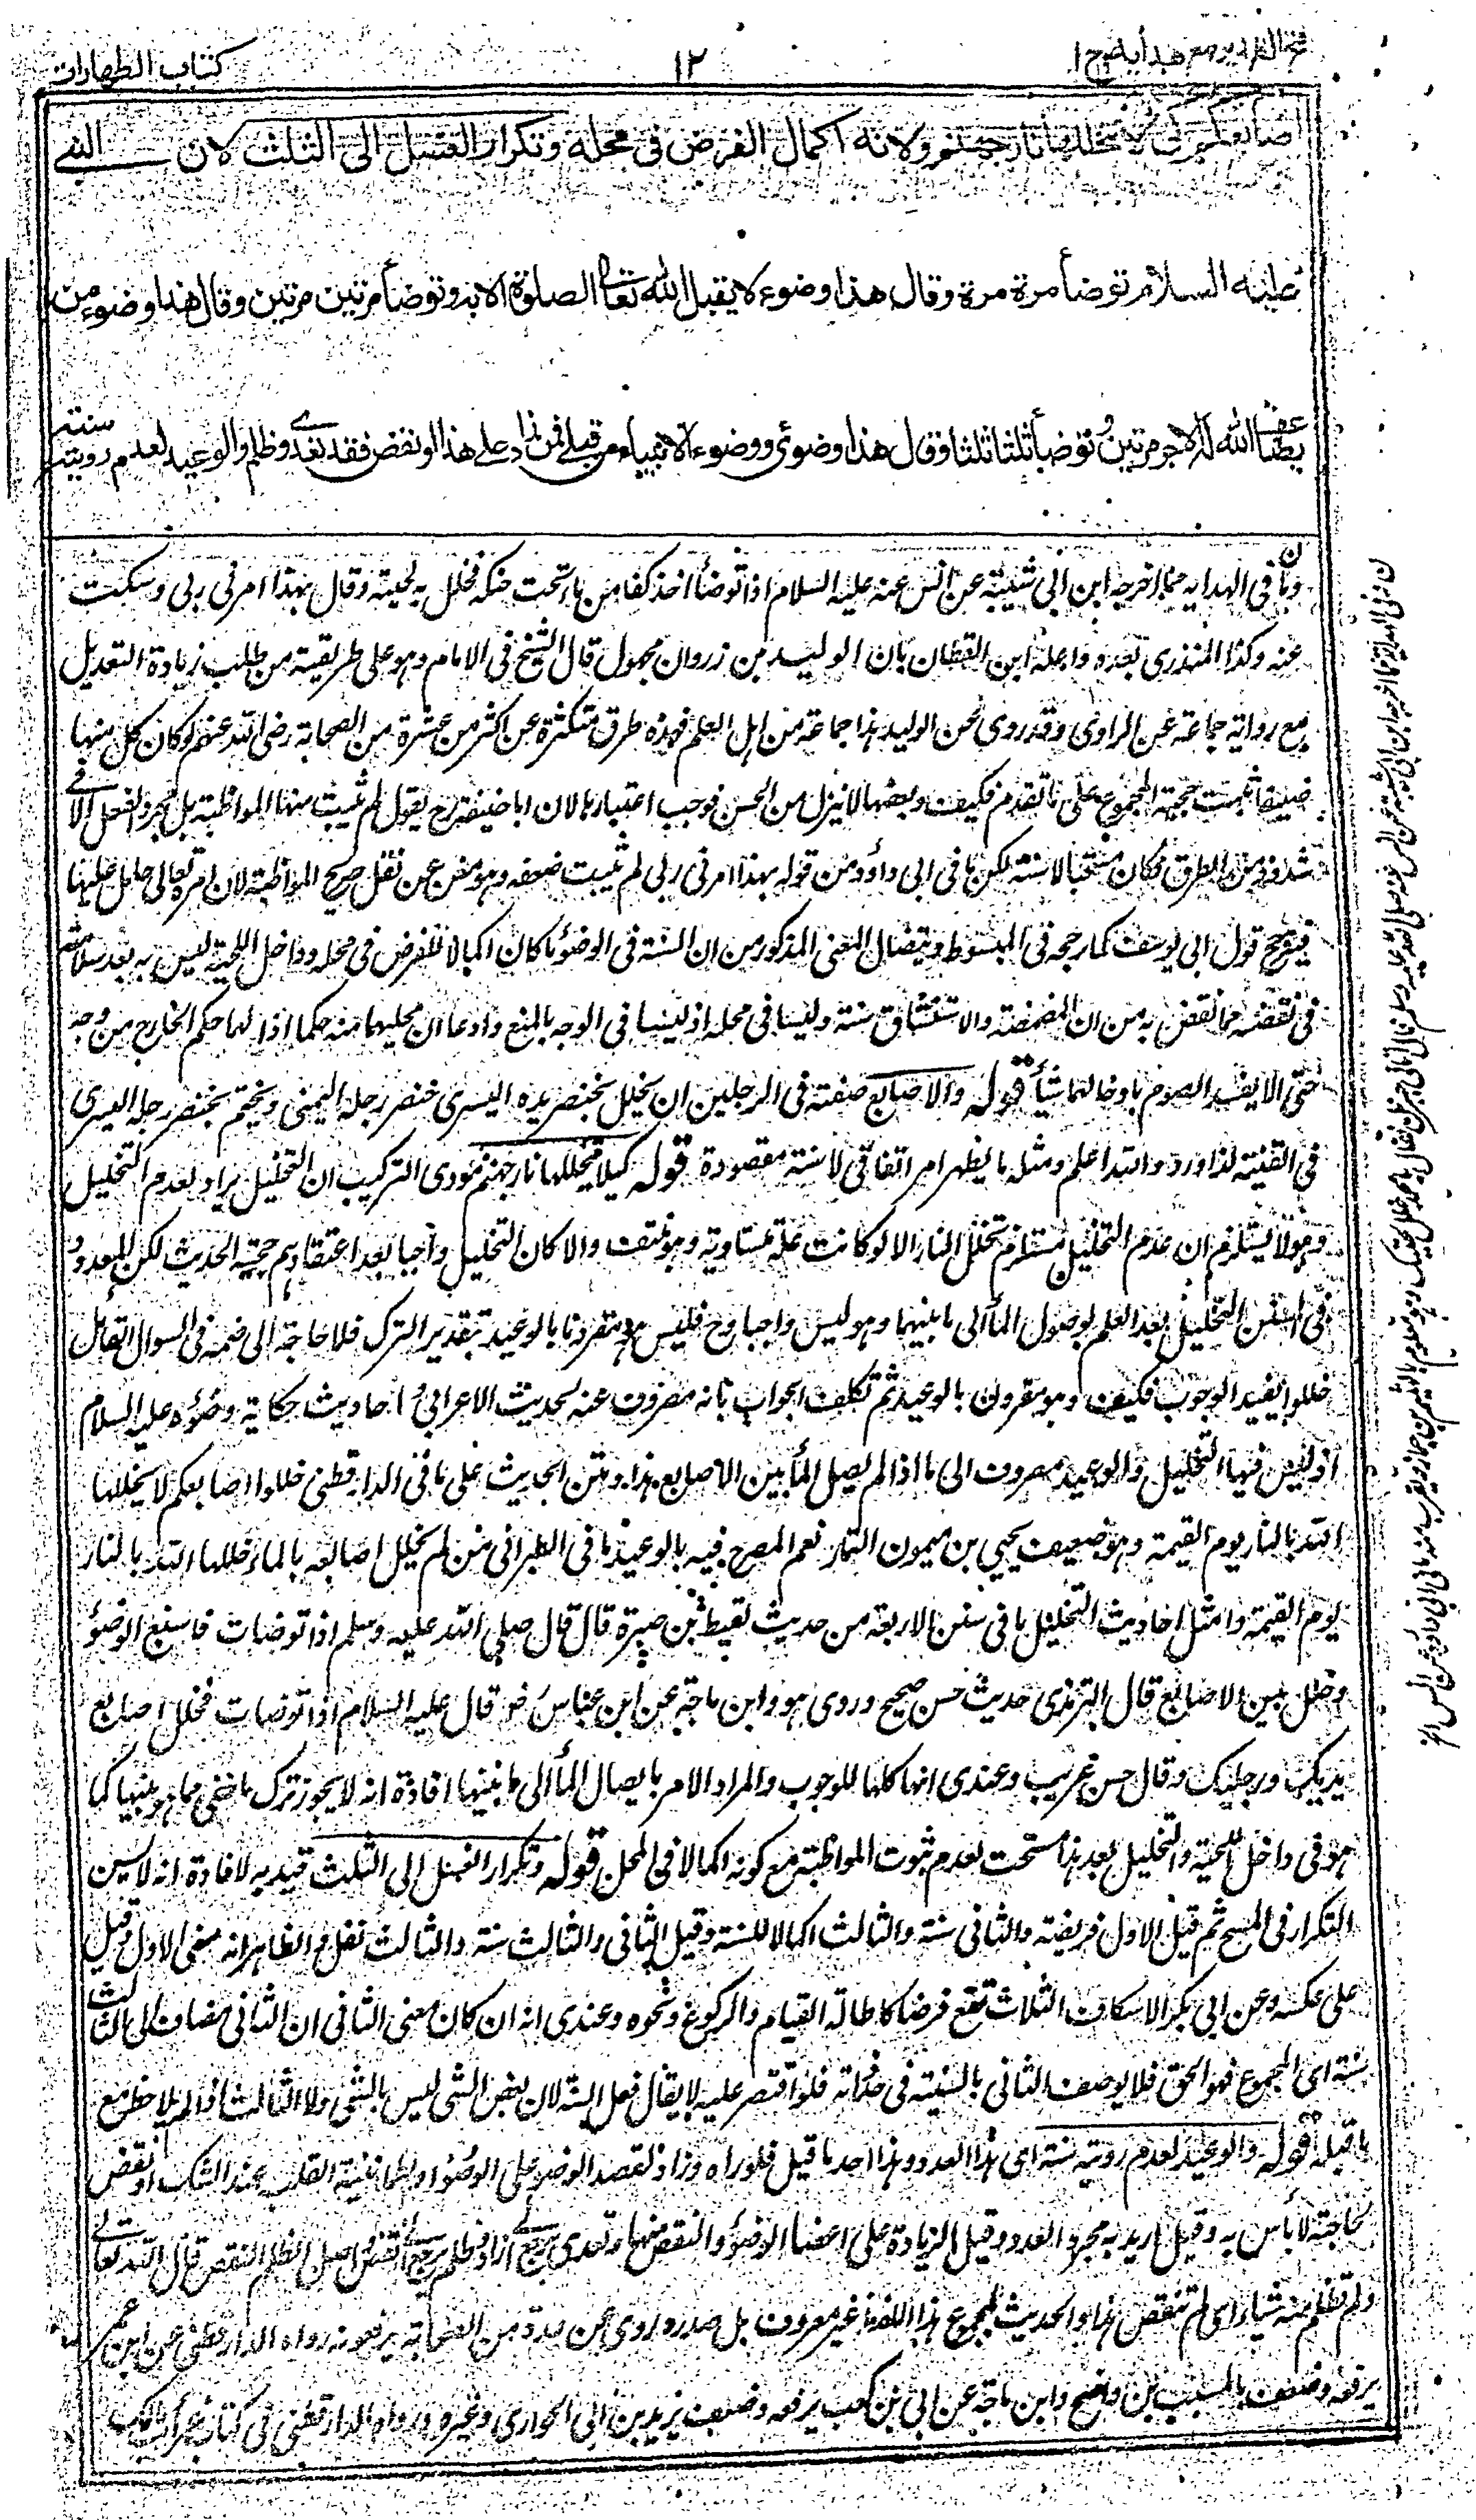 فتح القدير مع هدايه ج ا
١٢
كتاب الطهارات
اصابعكم كى لا تتخللها نار جهنم ولانه اكمال الفرض فى محله وتكرار الغسل الى الثلث لان النبى
عليه السلام توضأ مرة مرة وقال هذا وضوء لا يقبل الله تعالى الصلوة الا به وتوضأ مرتين مرتين وقال هذا وضوء من
يضاعف الله له الاجر مرتين وتوضأ ثلثا ثلثا وقال هذا وضوئى ووضوء الانبياء من قبلى فمن زاد على هذا او نقص فقد تعدى وظلم والوعيد لعدم رويته سنة
وما فى الهدايه مما اخرجه ابن ابى شيبة عن انس عنه عليه السلام اذا توضأ اخذ كفا من ماء تحت حنكه فخلل به لحيته وقال بهذا امرنى ربى وسكت
عنه وكذا المنذرى بعده واعله ابن القطان بان الوليد بن زروان مجهول قال الشيخ فى الامام وهو على طريقية من طلب زيادة التعديل
مع رواية جماعة عن الراوى وقد روى عن الوليد هذا جماعة من اهل العلم فهذه طرق متكثرة عن اكثر من عشرة من الصحابة رضى الله عنهم لو كان كل منها
ضعيفا ثبتت حجية المجموع على ما تقدم فكيف وبعضها لا ينزل من الحسن فوجب اعتبارها الا ان ابا حنيفة رح يقول لم يثبت منها المواظبة بل مجرد الفعل الا فى
شذوذ من الطرق فكان مستحبا لا سنة لكن ما فى ابى داؤد من قوله بهذا امرنى ربى لم يثبت ضعفه وهو مغن عن نقل صريح المواظبة لان امره تعالى حامل عليها
فيترجح قول ابى يوسف كما رجحه فى المبسوط ويتضاءل المعنى المذكور من ان السنة فى الوضوء ما كان اكمالا للفرض فى محله وداخل اللحية ليس به بعد سلامته
فى نقضه مما نقض به من ان المضمضة والاستنشاق سنة وليسا فى محله اذ ليسا فى الوجه بالمنع وادعا ان محليهما منه حكما اذ لهما حكم الخارج من وجه
حتى لا يفسد الصوم بادخالهما شيأ قوله والاصابع صفته فى الرجلين ان يخلل بخنصر يده اليسرى خنصر رجله اليمنى ويختم بخنصر رجله اليسرى
فى القنية لذا ورد والله اعلم ومثله ما يظهر امر اتفاقى لا سنة مقصودة قوله كيلا تتخللها نار جهنم مؤدى التركيب ان التخليل يراد لعدم التخليل
وهو لا يستلزم ان عدم التخليل مستلزم تخلل النار الا لو كانت علة مساوية وهو منتف والا كان التخليل واجبا بعد اعتقادهم حجية الحديث لكن المعدود
فى السنن التخليل بعد العلم بوصول الماء الى ما بينهما وهو ليس واجبا وح فليس هو مقرونا بالوعيد بتقدير الترك فلا حاجة الى ضمه فى السوال القائل
خللوا يفيد الوجوب فكيف وهو مقرون بالوعيد ثم تكلف الجواب بانه مصروف عنه بحديث الاعرابى و احاديث حكاية وضوءه عليه السلام
اذ ليس فيها التخليل والوعيد مصروف الى ما اذا لم يصل الماء بين الاصابع هذا ومتن الحديث على ما فى الدارقطنى خللوا اصابعكم لا يخللها
الله بالنار يوم القيمة وهو ضعيف بيحيى بن ميمون التمار نعم المصرح فيه بالوعيد ما فى الطبرانى من لم يخلل اصابعه بالماء خللها الله بالنار
يوم القيمة وامثل احاديث التخليل ما فى سنن الاربعة من حديث لقيط بن صبرة قال قال صلى الله عليه وسلم اذا توضات فاسبغ الوضوء
وخلل بين الاصابع قال الترمذى حديث حسن صحيح وروى هو وابن ماجة عن ابن عباس رض قال عليه السلام اذا توضات فخلل اصابع
يديك ورجليك وقال حسن غريب وعندى انها كلها للوجوب والمراد الامر بايصال الماء الى ما بينها افادة انه لا يجوز ترك ما خفى مما هو بينها كما
هو فى داخل اللحية والتخليل بعد هذا مستحب لعدم ثبوت المواظبة مع كونه اكمالا فى المحل قوله وتكرار الغسل الى الثلث قيد به لافادة انه لا يسن
التكرار فى المسح ثم قيل الاول فريضة والثانى سنة والثالث اكمالا للسنة وقيل الثانى والثالث سنة والثالث نفل والظاهر انه معنى الاول وقيل
على عكسه وعن ابى بكر الاسكاف الثلاث تقع فرضا كاطالة القيام والركوع ونحوه وعندى انه ان كان معنى الثانى ان الثانى مضاف الى الثالث
سنة اى المجموع فهو الحق فلا يوصف الثانى بالسنية فى حد ذاته فلو اقتصر عليه لا يقال فعل السنة لان بعض الشى ليس بالشى ولا الثالث اذا لم يلاحظ مع
ما قبله قوله والوعيد لعدم رويته سنة اى هذا العدد وهذا احد ما قيل فلو راه وزاد لقصد الوضوء على الوضوء او لطمانينة القلب عند الشك او نقض
لحاجته لا بأس به وقيل اريد به مجرد العدد وقيل الزيادة على اعضا الوضوء والنقص منها وتعدى يرجع الى زاد وظلم يرجع الى نقص اصل الظلم النقص قال الله تعالى
ولم تظلم منه شيئا اى لم تنقص هذا والحديث بمجموع هذا اللفظ غير معروف بل صدره روى عن عدة من الصحابة يرفعونه رواه الدارقطنى عن ابن عمر
يرفعه وضعف بالمسيب بن واضح وابن ماجة عن ابى بن كعب يرفعه وضعف بزيد بن ابى الحوارى وغيره ورواه الدارقطنى فى كتاب غرائب مالك